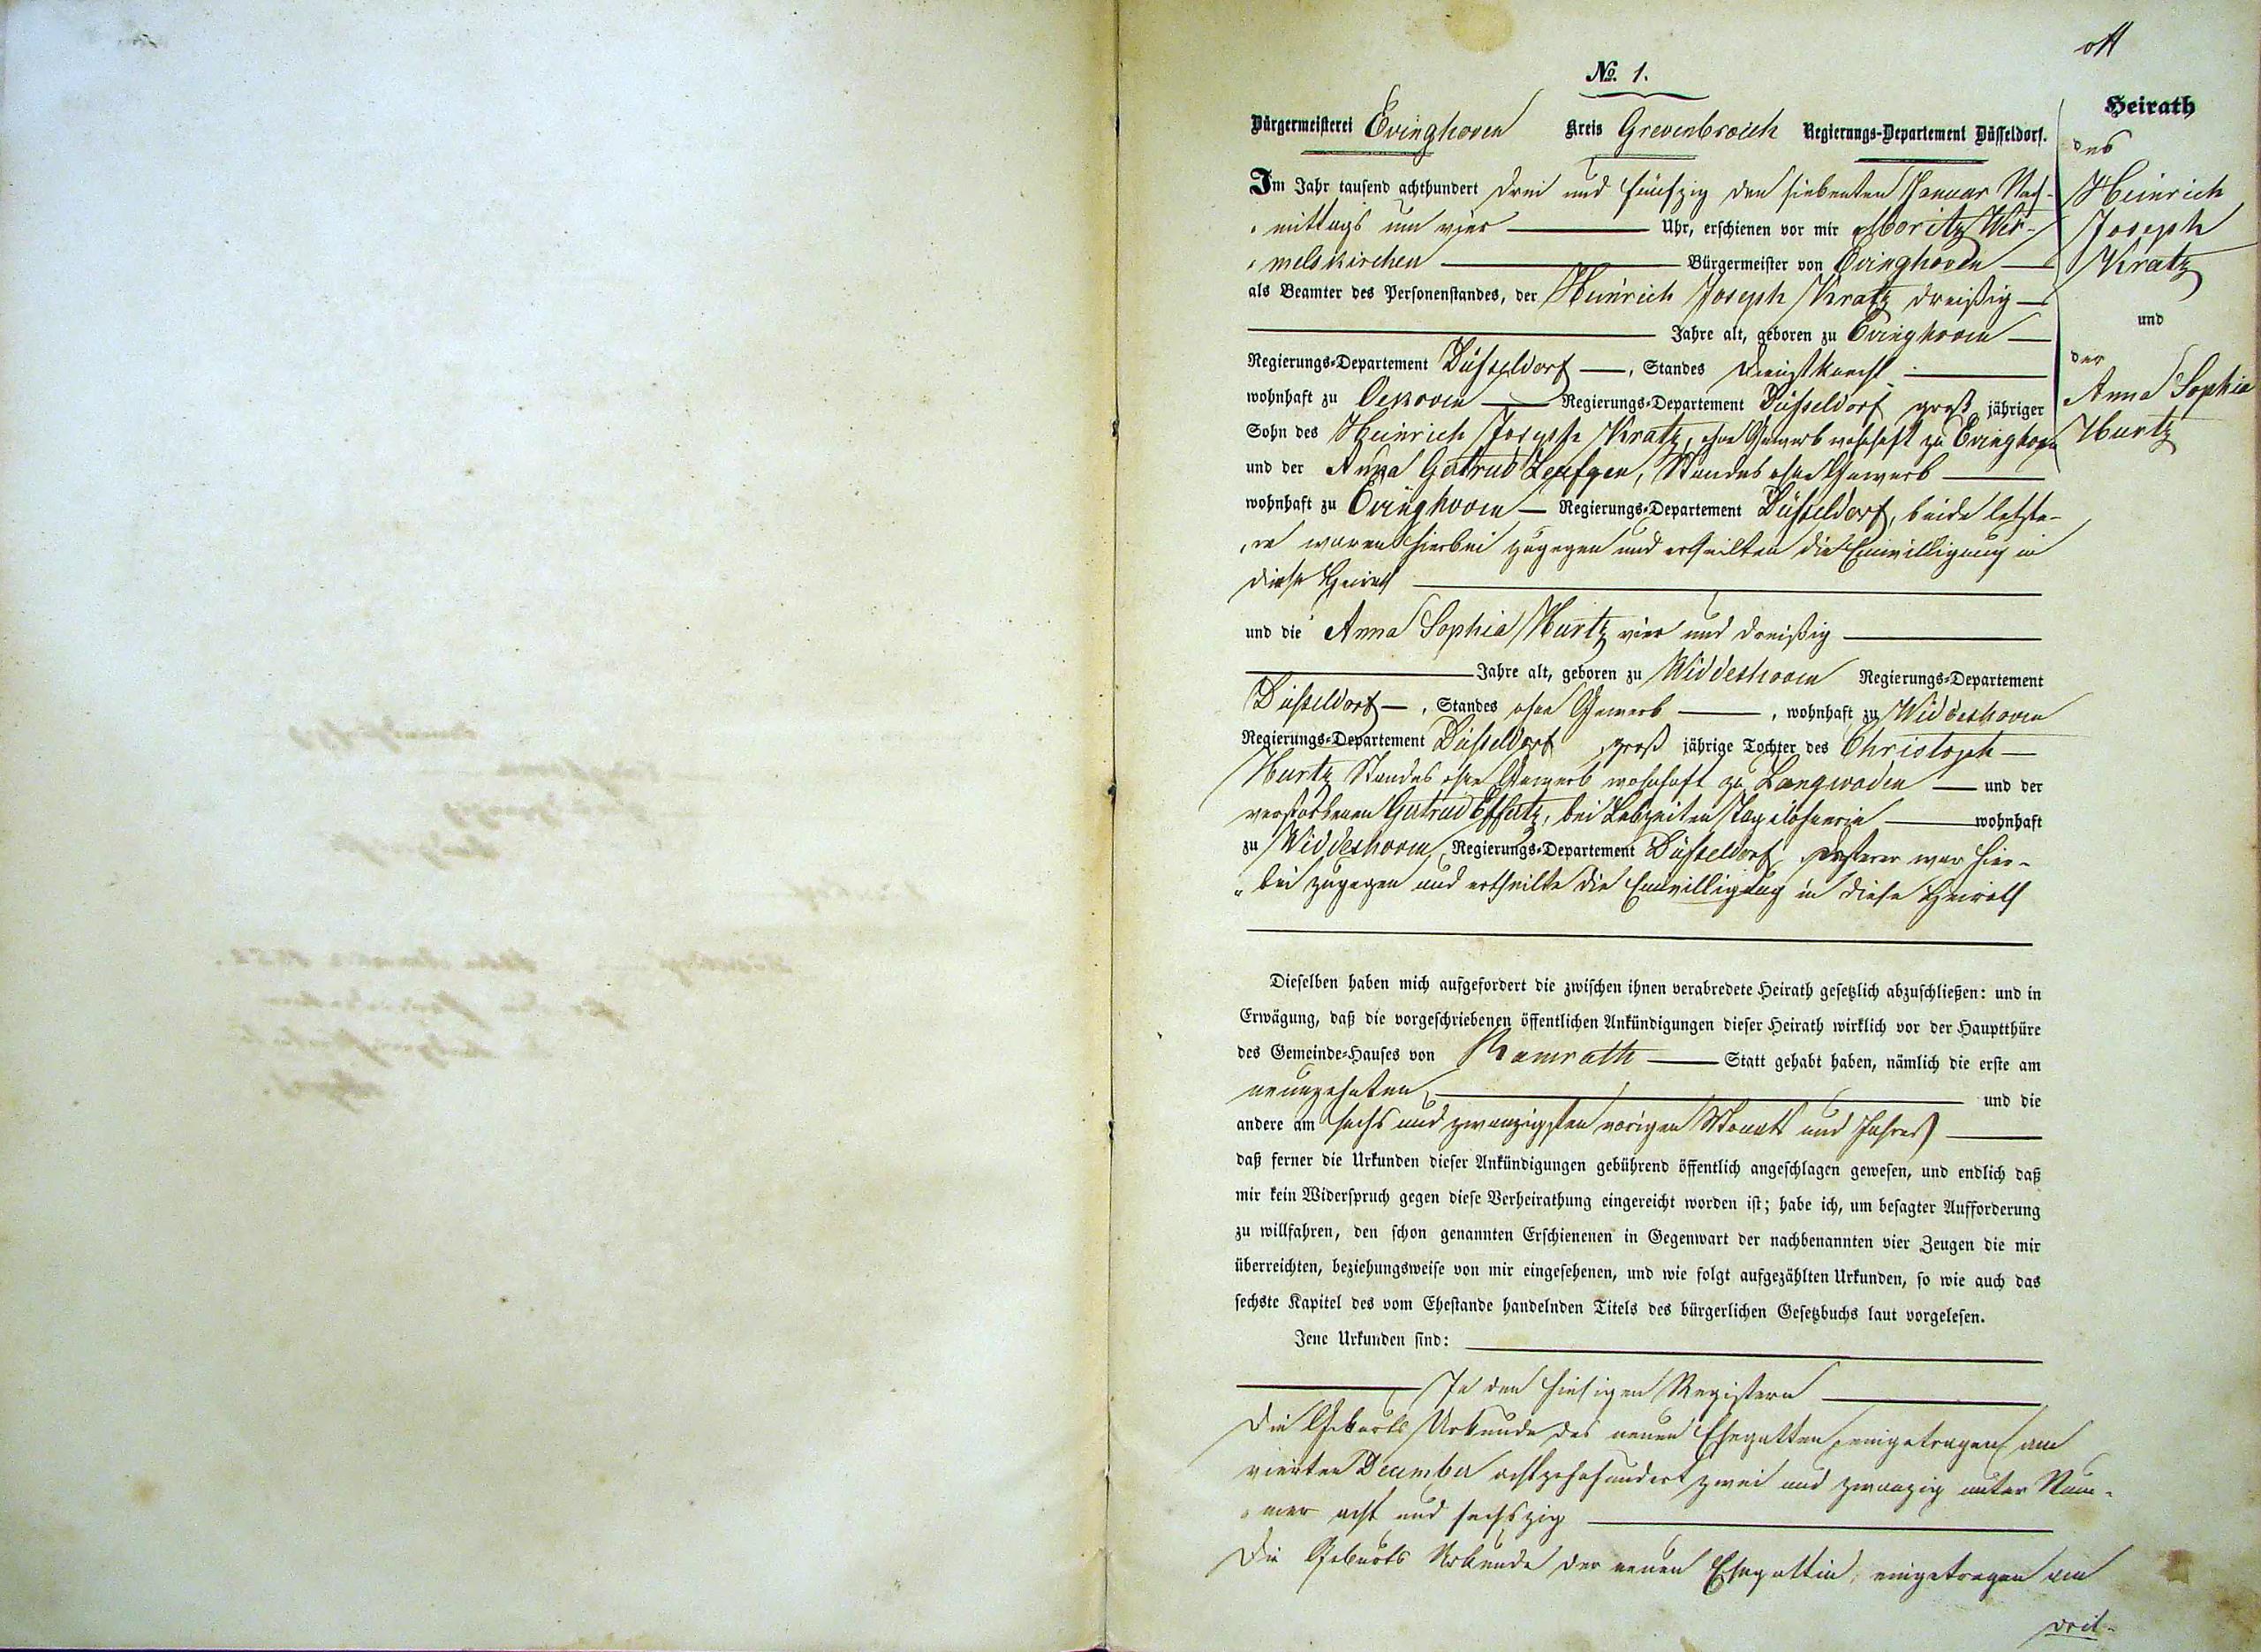 No. 1.
Bürgermeisterei Evinghoven Kreis Grevenbroich Regierungs-Departement Düsseldorf.
Im Jahr tausend achthundert drei und fünfzig den siebenten Januar Nach-
mittags um vier Uhr, erschienen vor mir Moritz Wer-
melskirchen Bürgermeister von Evinghoven
als Beamter des Personenstandes, der Heinrich Joseph Kratz dreißig
Jahre alt, geboren zu Evinghoven
Regierungs-Departement Düsseldorf, Standes Dienstknecht
wohnhaft zu Oekoven Regierungs-Departement Düsseldorf groß jähriger
Sohn des Heinrich Joseph Kratz, ohne Gewerb wohnhaft zu Evinghoven
und der Anna Gertrud Leufgen, Standes ohne Gewerb
wohnhaft zu Evinghoven Regierungs-Departement Düsseldorf, beide letzte-
re waren hierbei zugegen und ertheilten die Einwilligung in
diese Heirath
und die Anna Sophia Hurtz vier und dreißig
Jahre alt, geboren zu Widdeshoven Regierungs-Departement
Düsseldorf, Standes ohne Gewerb, wohnhaft zu Widdeshoven
Regierungs-Departement Düsseldorf groß jährige Tochter des Christoph
Hurtz Standes ohne Gewerb wohnhaft zu Langwaden und der
verstorbenen Gertrud Effertz, bei Lebzeiten Tagelöhnerin wohnhaft
zu Widdeshoven Regierungs-Departement Düsseldorf, ersterer war hier-
bei zugegen und ertheilte die Einwilligung in diese Heirath
Dieselben haben mich aufgefordert die zwischen ihnen verabredete Heirath gesetzlich abzuschließen: und in
Erwägung, daß die vorgeschriebenen öffentlichen Ankündigungen dieser Heirath wirklich vor der Hauptthüre
des Gemeinde-Hauses von Ramrath Statt gehabt haben, nämlich die erste am
neunzehnten und die
andere am sechs und zwanzigsten vorigen Monats und Jahres
daß ferner die Urkunden dieser Ankündigungen gebührend öffentlich angeschlagen gewesen, und endlich daß
mir kein Widerspruch gegen diese Verheirathung eingereicht worden ist; habe ich, um besagter Aufforderung
zu willfahren, den schon genannten Erschienenen in Gegenwart der nachbenannten vier Zeugen die mir
überreichten, beziehungsweise von mir eingesehenen, und wie folgt aufgezählten Urkunden, so wie auch das
sechste Kapitel des vom Ehestande handelnden Titels des bürgerlichen Gesetzbuchs laut vorgelesen.
Jene Urkunden sind:
In den hiesigen Registern
Die Geburts Urkunde des neuen Ehegatten, eingetragen am
vierten December achtzehnhundert zwei und zwanzig unter Num-
mer acht und sechszig
Die Geburts Urkunde der neuen Ehegattin, eingetragen am
Heirath
des
Heinrich
Joseph
Kratz
und
der
Anna Sophia
Hurtz